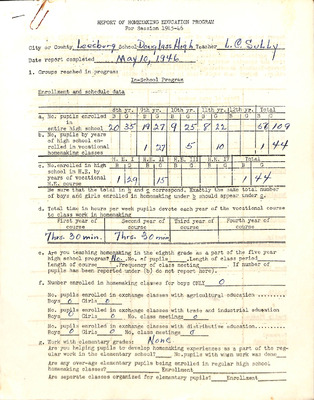 REPORT OF HOMEMAKING EDUCATION PROGRAM
For Session 1945-46
City or County Leesburg School Douglass High Teacher
Date report completed May 10, 1946
1. Groups reached in program:
In-School Program
Enrollment and schedule data
8th yr. 9th yr. 10th yr. 11th yr. 12th yr. Total
B G B G B G B G B G B G
a. No. pupils enrolled in entire high school 20 35 19 27 9 25 8 22 109
b. No. pupils by years of high school enrolled in vocational homemaking classes 1 27 5 10 1 44
H.E. I H.E. II H.E. III H.E. IV Total
c. No. enrolled in high school in H.E. by years of vocational H.E. course 1 29 15 1 44
Be sure that the total in b and c correspond. Exactly the same total number
of boys and girls enrolled in homemaking under b should appear under c.
d. Total time in hours per week pupils devote each year of the vocational course
to class work in homemaking
First year of course Second year of course Third year of course Fourth year of course
7 hrs. 30 min. 7 hrs. 30 min
e. Are you teaching homemaking in the eighth grade as a part of the five year
high school program? No. No. of pupils Length of class period
length of course Frequency of class meeting If number of
pupils has been reported under (b) do not report here).
f. Number enrolled in homemaking classes for boys ONLY 0
No. pupils enrolled in exchange classes with agricultural education
Boys 0 Girls 0
No. pupils enrolled in exchange classes with trade and industrial education
Boys 0 Girls 0 No. class meetings 0
No. pupils enrolled in exchange classes with distributive education
Boys 0 Girls 0 No. class meetings 0
g. Work with elementary grades: None
Are you helping pupils to develop homemaking experiences as a part of the regular
work in the elementary school? No. pupils with whom work was done
Are any over-age elementary pupils being enrolled in regular high school
homemaking classes? Enrollment
Are separate classes organized for elementary pupils? Enrollment